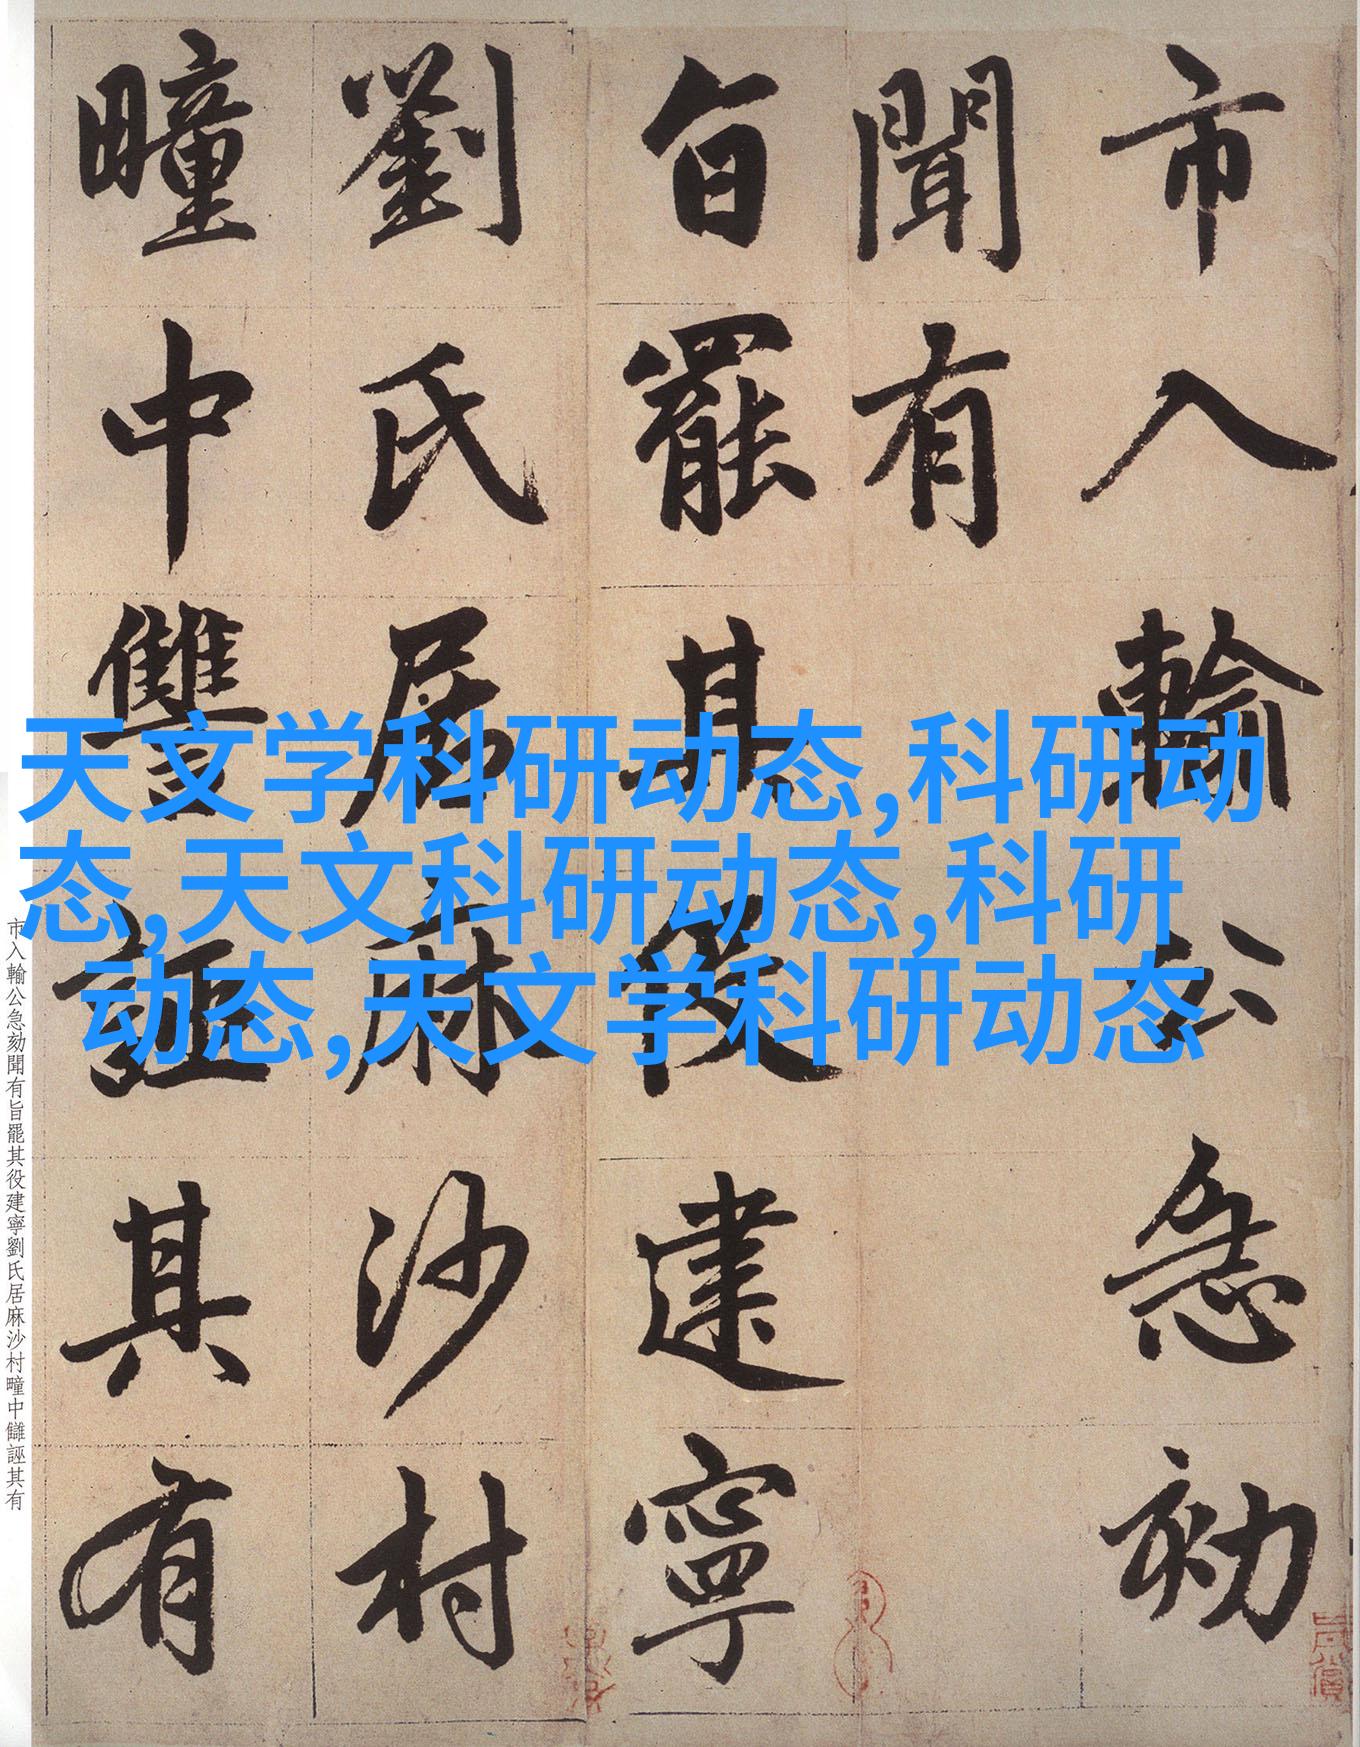 市入輸公急劾
聞有
旨罷其役建寧
劉氏居麻沙村
疃中讐誣其有
天文学科研动态,科研动
态,天文科研动态,科研
动态,天文学科研动态
市入輸公急劾聞有旨罷其役建寧劉氏居麻沙村疃中讎誣其有